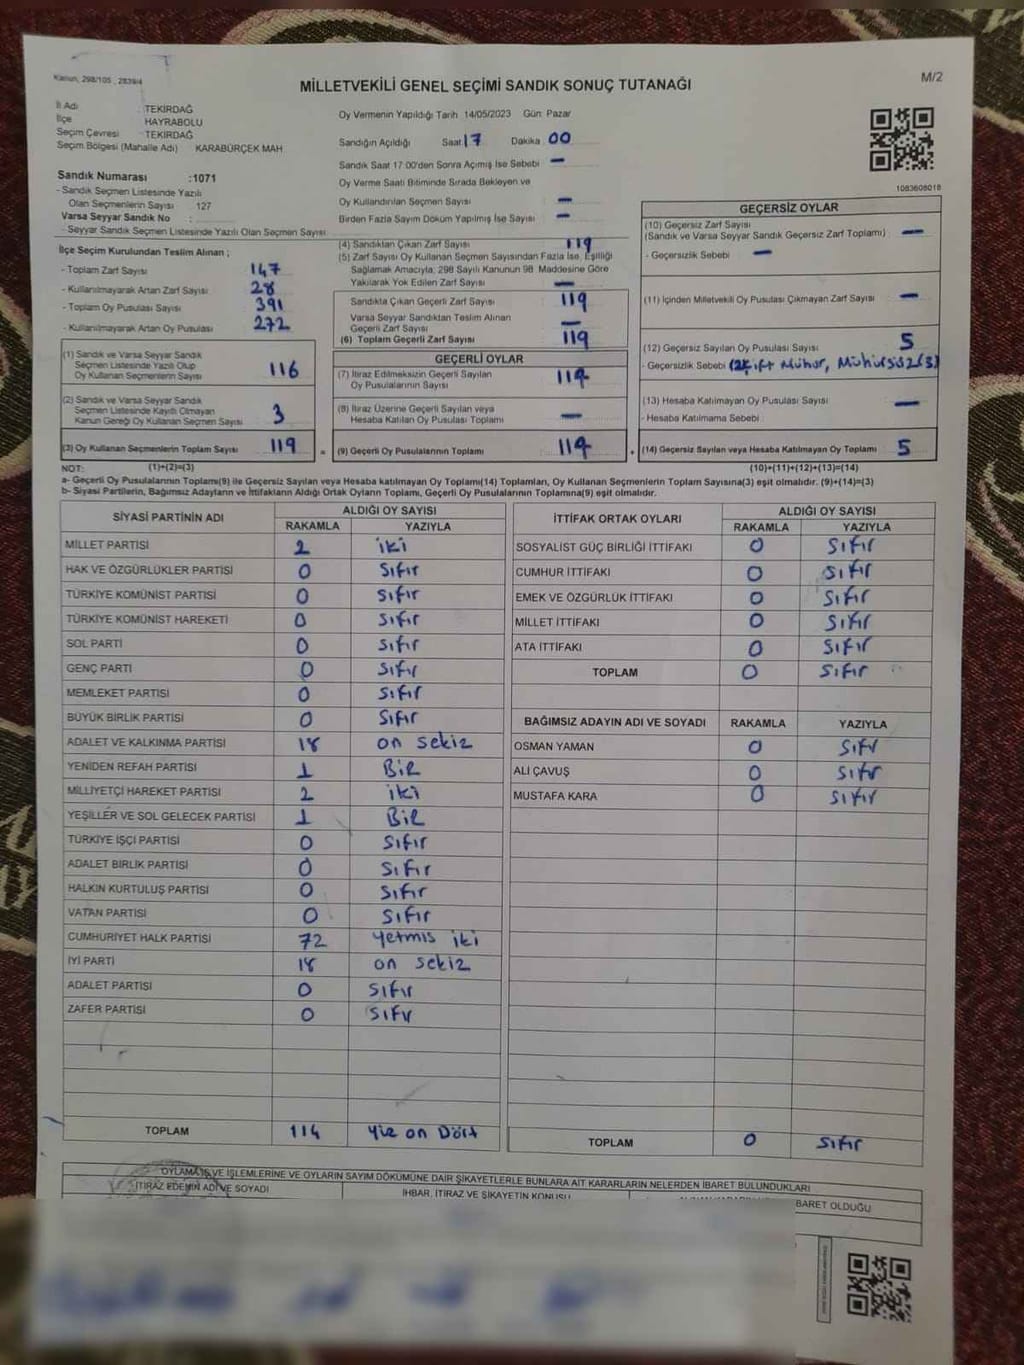 Kanun, 298/105, 2839/4
M/2
MİLLETVEKİLİ GENEL SEÇİMİ SANDIK SONUÇ TUTANAĞI
İl Adı : TEKİRDAĞ
İlçe HAYRABOLU
Seçim Çevresi : TEKİRDAĞ
Seçim Bölgesi (Mahalle Adı) KARABÜRÇEK MAH
Sandık Numarası :1071
- Sandık Seçmen Listesinde Yazılı
Olan Seçmenlerin Sayısı : 127
Varsa Seyyar Sandık No :
- Seyyar Sandık Seçmen Listesinde Yazılı Olan Seçmen Sayısı
Oy Vermenin Yapıldığı Tarih 14/05/2023 Gün: Pazar
Sandığın Açıldığı Saat 17 Dakika 00
Sandık Saat 17:00'den Sonra Açılmış İse Sebebi —
Oy Verme Saati Bitiminde Sırada Bekleyen ve
Oy Kullandırılan Seçmen Sayısı —
Birden Fazla Sayım Döküm Yapılmış İse Sayısı —
1083608018
İlçe Seçim Kurulundan Teslim Alınan ;
- Toplam Zarf Sayısı 147
- Kullanılmayarak Artan Zarf Sayısı 28
- Toplam Oy Pusulası Sayısı 391
- Kullanılmayarak Artan Oy Pusulası 272
(1) Sandık ve Varsa Seyyar Sandık
Seçmen Listesinde Yazılı Olup
Oy Kullanan Seçmenlerin Sayısı 116
(2) Sandık ve Varsa Seyyar Sandık
Seçmen Listesinde Kayıtlı Olmayan
Kanun Gereği Oy Kullanan Seçmen Sayısı 3
(3) Oy Kullanan Seçmenlerin Toplam Sayısı 119
(1)+(2)=(3)
(4) Sandıktan Çıkan Zarf Sayısı 119
(5) Zarf Sayısı Oy Kullanan Seçmen Sayısından Fazla İse, Eşitliği
Sağlamak Amacıyla; 298 Sayılı Kanunun 98. Maddesine Göre
Yakılarak Yok Edilen Zarf Sayısı —
Sandıkta Çıkan Geçerli Zarf Sayısı 119
Varsa Seyyar Sandıktan Teslim Alınan
Geçerli Zarf Sayısı —
(6) Toplam Geçerli Zarf Sayısı 119
GEÇERLİ OYLAR
(7) İtiraz Edilmeksizin Geçerli Sayılan
Oy Pusulalarının Sayısı 114
(8) İtiraz Üzerine Geçerli Sayılan veya
Hesaba Katılan Oy Pusulası Toplamı —
= (9) Geçerli Oy Pusulalarının Toplamı 114
GEÇERSİZ OYLAR
(10) Geçersiz Zarf Sayısı
(Sandık ve Varsa Seyyar Sandık Geçersiz Zarf Toplamı) —
- Geçersizlik Sebebi —
(11) İçinden Milletvekili Oy Pusulası Çıkmayan Zarf Sayısı —
(12) Geçersiz Sayılan Oy Pusulası Sayısı 5
- Geçersizlik Sebebi (2Çift Mühür, Mühürsüz(3)
(13) Hesaba Katılmayan Oy Pusulası Sayısı —
- Hesaba Katılmama Sebebi :
+ (14) Geçersiz Sayılan veya Hesaba Katılmayan Oy Toplamı 5
(10)+(11)+(12)+(13)=(14)
NOT:
a- Geçerli Oy Pusulalarının Toplamı(9) ile Geçersiz Sayılan veya Hesaba Katılmayan Oy Toplamı(14) Toplamları, Oy Kullanan Seçmenlerin Toplam Sayısına(3) eşit olmalıdır. (9)+(14)=(3)
b- Siyasi Partilerin, Bağımsız Adayların ve İttifakların Aldığı Ortak Oyların Toplamı, Geçerli Oy Pusulalarının Toplamına(9) eşit olmalıdır.
SİYASİ PARTİNİN ADI ALDIĞI OY SAYISI
RAKAMLA YAZIYLA
MİLLET PARTİSİ 2 iki
HAK VE ÖZGÜRLÜKLER PARTİSİ 0 Sıfır
TÜRKİYE KOMÜNİST PARTİSİ 0 Sıfır
TÜRKİYE KOMÜNİST HAREKETİ 0 Sıfır
SOL PARTİ 0 Sıfır
GENÇ PARTİ 0 Sıfır
MEMLEKET PARTİSİ 0 Sıfır
BÜYÜK BİRLİK PARTİSİ 0 Sıfır
ADALET VE KALKINMA PARTİSİ 18 on sekiz
YENİDEN REFAH PARTİSİ 1 BİR
MİLLİYETÇİ HAREKET PARTİSİ 2 iki
YEŞİLLER VE SOL GELECEK PARTİSİ 1 BİR
TÜRKİYE İŞÇİ PARTİSİ 0 Sıfır
ADALET BİRLİK PARTİSİ 0 Sıfır
HALKIN KURTULUŞ PARTİSİ 0 Sıfır
VATAN PARTİSİ 0 Sıfır
CUMHURİYET HALK PARTİSİ 72 Yetmis iki
İYİ PARTİ 18 on sekiz
ADALET PARTİSİ 0 Sıfır
ZAFER PARTİSİ 0 Sıfır
TOPLAM 114 Yüz on Dört
İTTİFAK ORTAK OYLARI ALDIĞI OY SAYISI
RAKAMLA YAZIYLA
SOSYALİST GÜÇ BİRLİĞİ İTTİFAKI 0 Sıfır
CUMHUR İTTİFAKI 0 Sıfır
EMEK VE ÖZGÜRLÜK İTTİFAKI 0 Sıfır
MİLLET İTTİFAKI 0 Sıfır
ATA İTTİFAKI 0 Sıfır
TOPLAM 0 Sıfır
BAĞIMSIZ ADAYIN ADI VE SOYADI RAKAMLA YAZIYLA
OSMAN YAMAN 0 Sıfır
ALİ ÇAVUŞ 0 Sıfır
MUSTAFA KARA 0 Sıfır
TOPLAM 0 Sıfır
OYLAMA İŞ VE İŞLEMLERİNE VE OYLARIN SAYIM DÖKÜMÜNE DAİR ŞİKAYETLERLE BUNLARA AİT KARARLARIN NELERDEN İBARET BULUNDUKLARI
İTİRAZ EDENİN ADI VE SOYADI
İHBAR, İTİRAZ VE ŞİKAYETİN KONUSU
BARET OLDUĞU